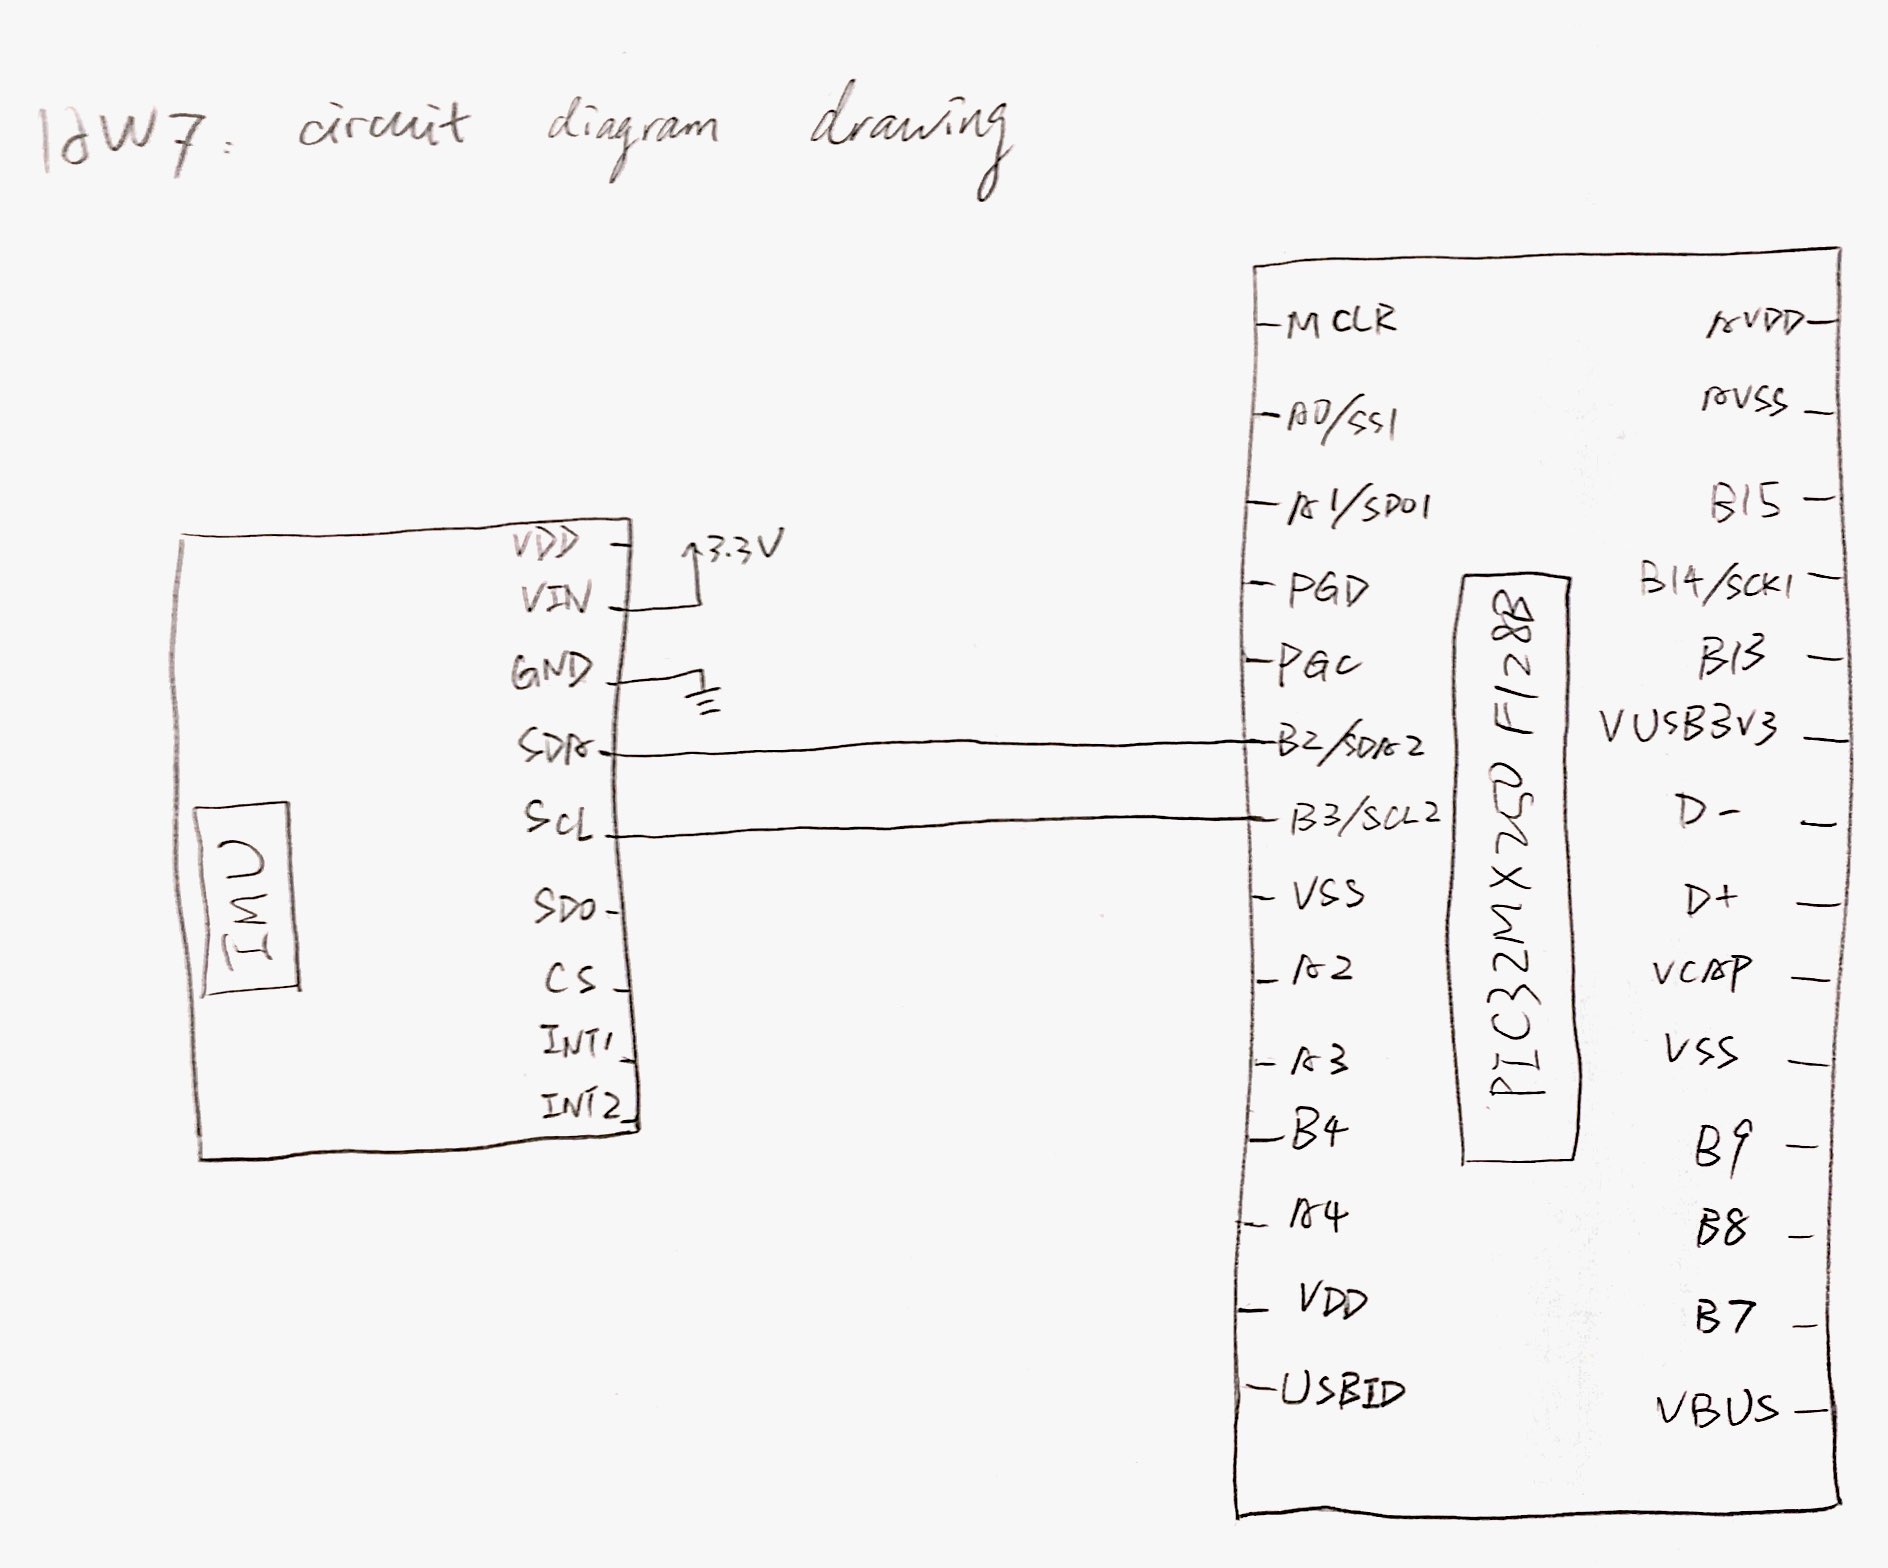 HW7: circuit diagram drawing
VDD
VIN
3.3V
GND
SDA
SCL
SDO
CS
INT1
INT2
IMU
MCLR
A0/SS1
A1/SDO1
PGD
PGC
B2/SDA2
B3/SCL2
VSS
A2
A3
B4
A4
VDD
USBID
PIC32MX250F128B
AVDD
AVSS
B15
B14/SCK1
B13
VUSB3V3
D-
D+
VCAP
VSS
B9
B8
B7
VBUS